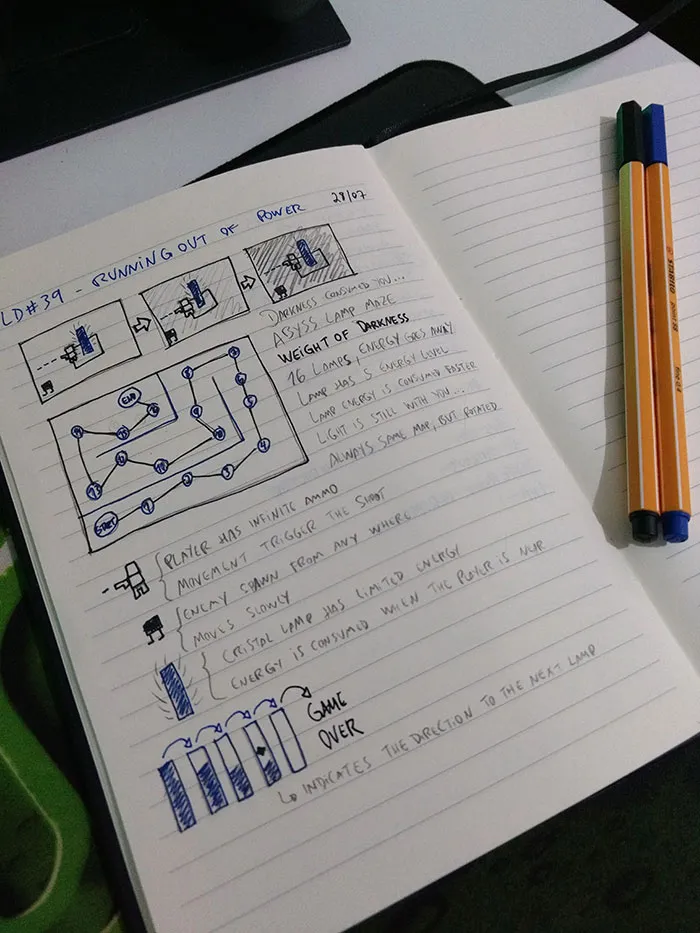 LD#39 - RUNNING OUT OF POWER 28/07
DARKNESS CONSUMED YOU...
ABYSS LAMP MAZE
WEIGHT OF DARKNESS
16 LAMPS, ENERGY GOES AWAY
LAMP HAS 5 ENERGY LEVEL
LAMP ENERGY IS CONSUMED FASTER
LIGHT IS STILL WITH YOU...
ALWAYS SAME MAP, BUT ROTATED
END
START
1
2
3
4
PLAYER HAS INFINITE AMMO
MOVEMENT TRIGGER THE SHOOT
ENEMY SPAWN FROM ANY WHERE
MOVES SLOWLY
CRISTAL LAMP HAS LIMITED ENERGY
ENERGY IS CONSUMED WHEN THE PLAYER IS NEAR
GAME
OVER
INDICATES THE DIRECTION TO THE NEXT LAMP
STABILO point 88